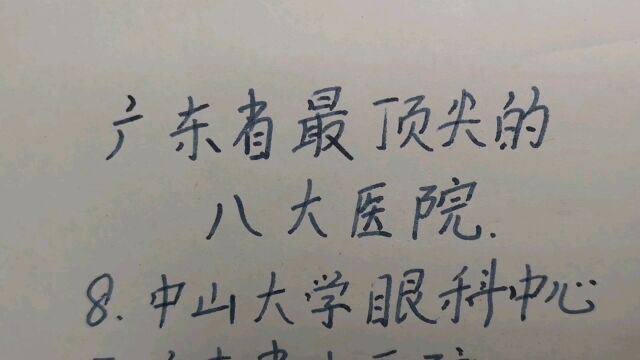 广东省最顶尖的
八大医院.
8.中山大学眼科中心